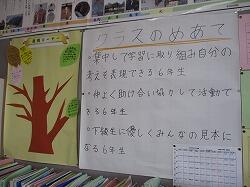 クラスのめあて
・集中して学習に取り組み自分の
考えを表現できる6年生
・仲よく助け合い協力して活動で
きる6年生
・下級生に優しくみんなの見本に
なる6年生